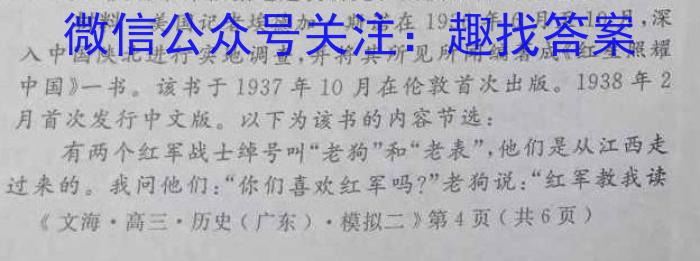 微信公众号关注：趣找答案
材料 美国记者埃德加·斯诺在 19 年 6 月至 10 月，深
入中国陕北进行实地调查，并将其所见所闻编著成《红星照耀
中国》一书。该书于 1937 年 10 月在伦敦首次出版。1938 年 2
月首次发行中文版。以下为该书的内容节选：
有两个红军战士绰号叫“老狗”和“老表”，他们是从江西走
过来的。我问他们：“你们喜欢红军吗?”老狗说：“红军教我读
《文海·高三·历史（广东）·模拟二》第 4 页（共 6 页）